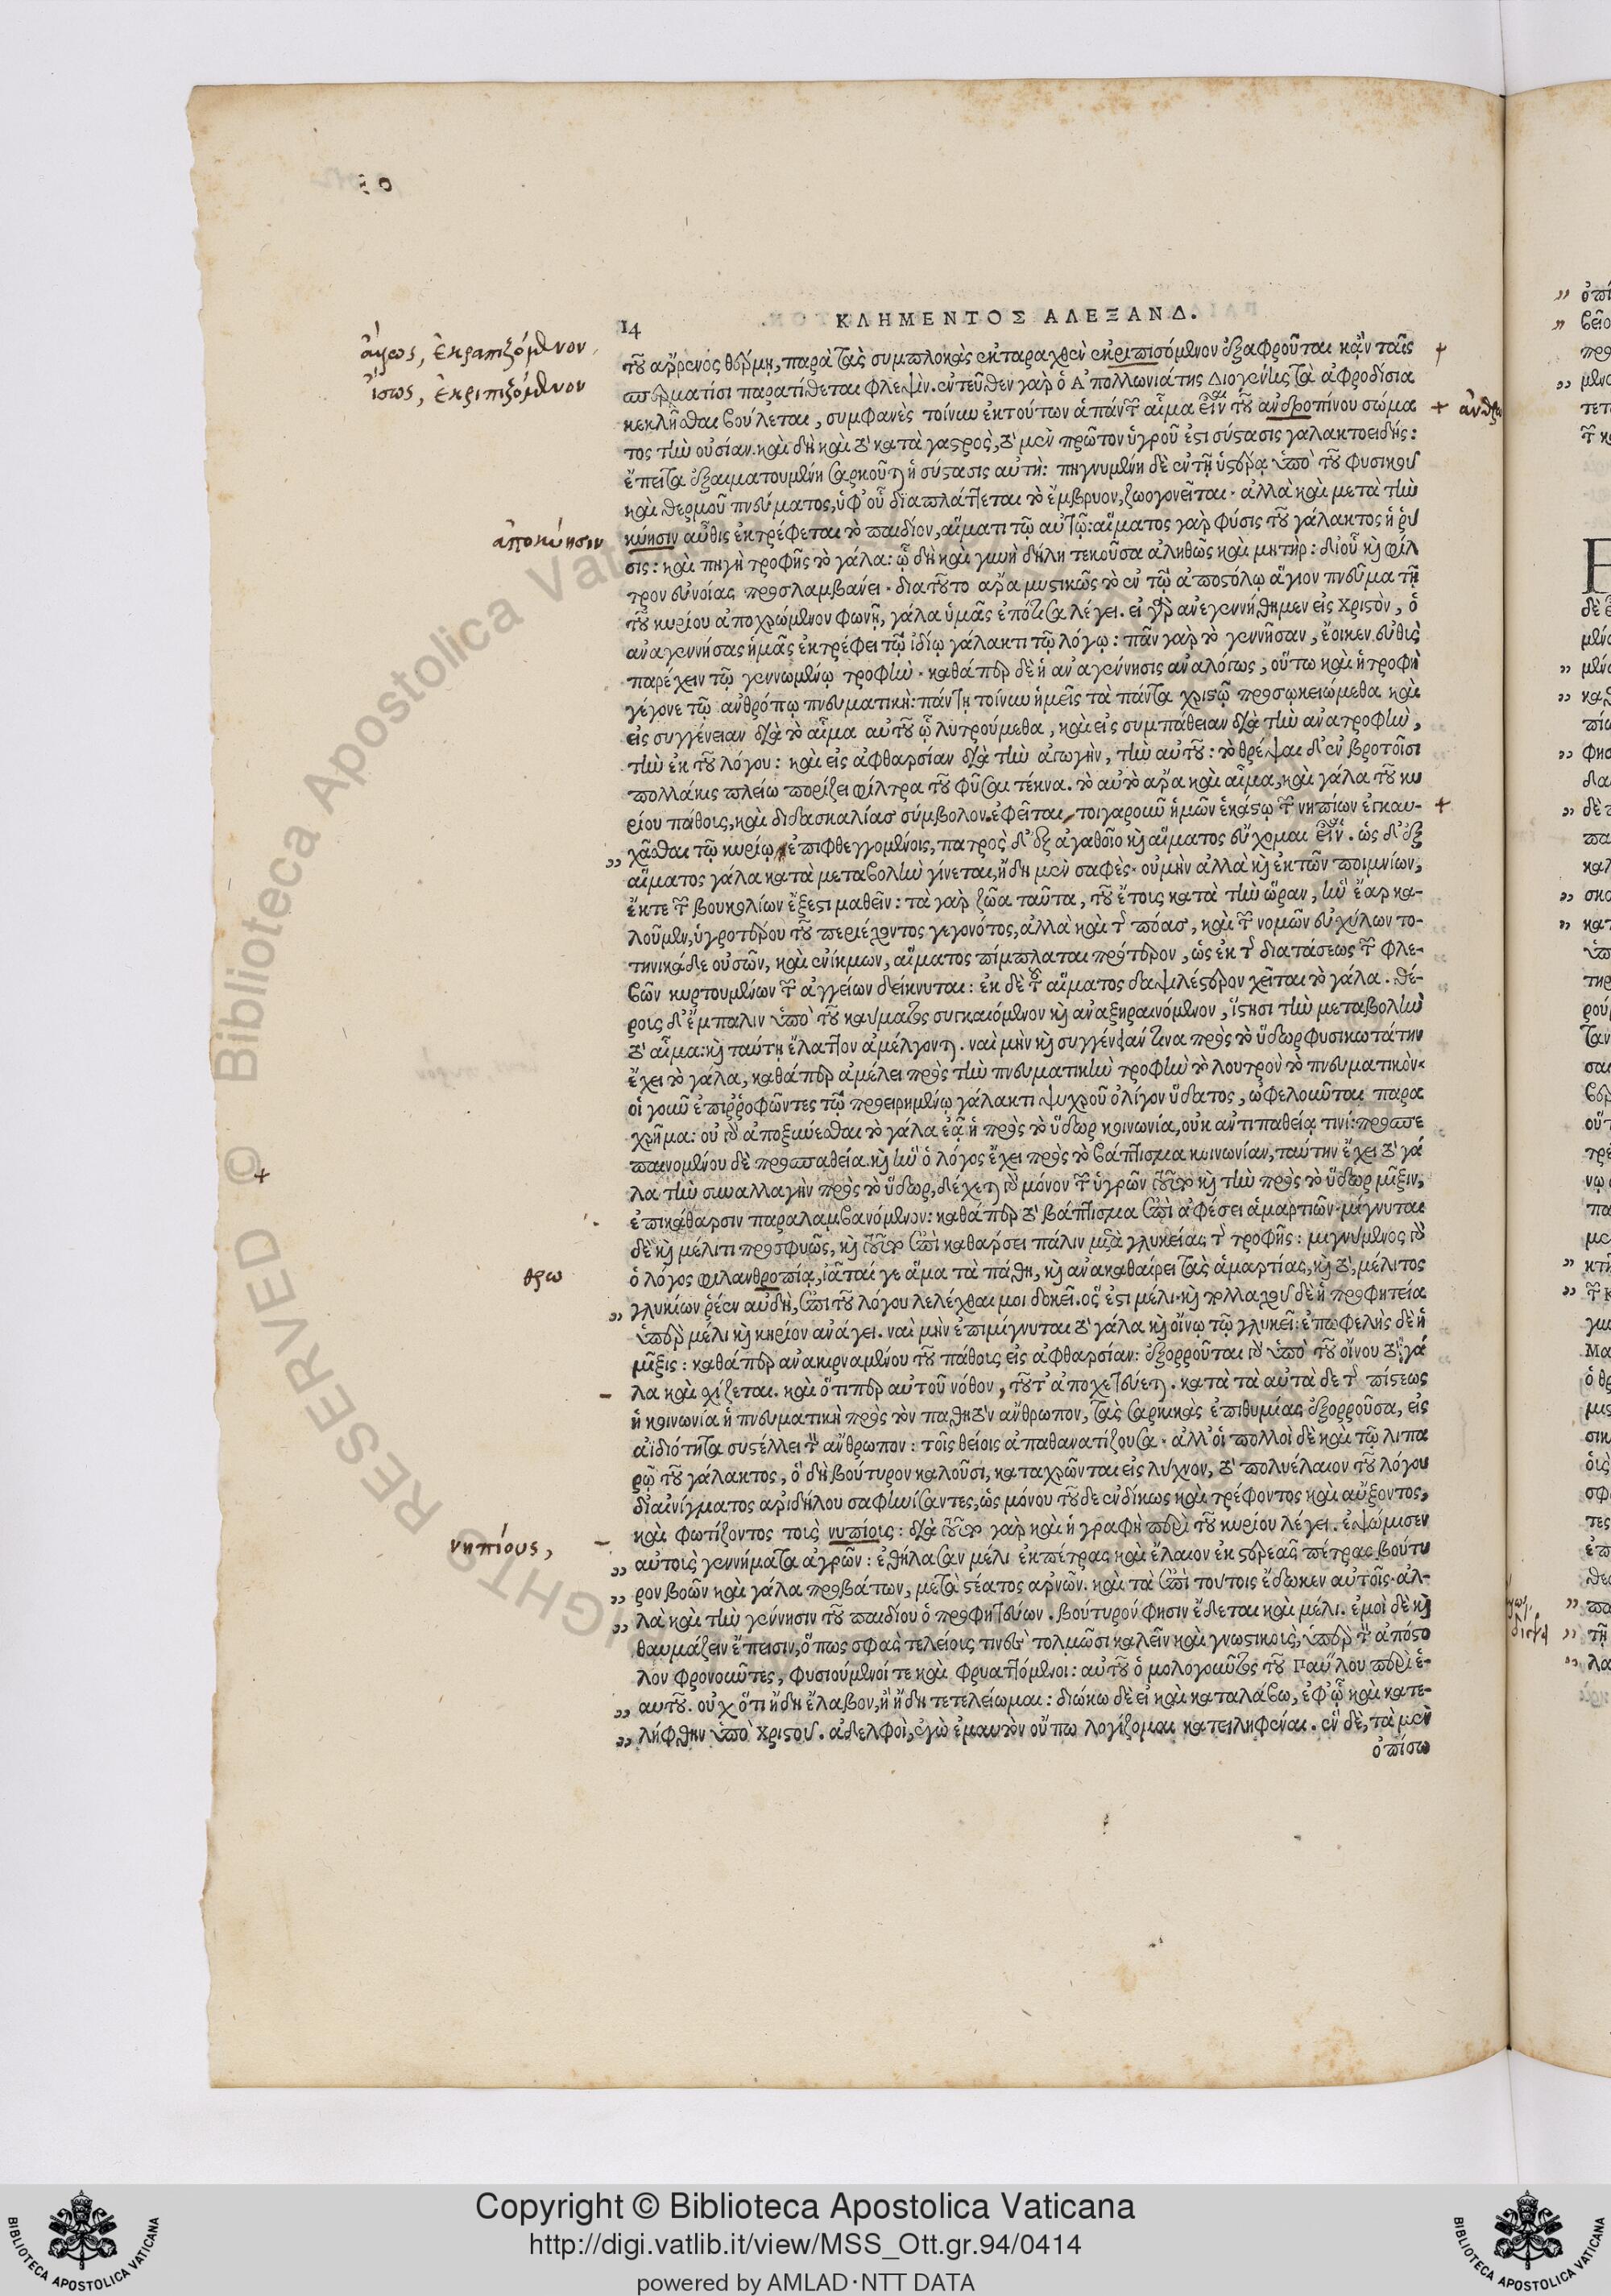 14
ΚΛΗΜΕΝΤΟΣ ΑΛΕΞΑΝΔ.
ἴσως, ἐκραπιζόμενον
ἴσως, ἐκριπιζόμενον
τοῦ ἄῤῥενος θέρμῃ, παρὰ τὰς συμπλοκὰς ἐκταραχθὲν ἐκριπισόμενον ἐξαφροῦται κἂν ταῖς
σπερματίσι παρατίθεται φλεψὶν. ἐντεῦθεν γὰρ ὁ Ἀπολλωνιάτης Διογένης τὰ ἀφροδίσια
κεκλῆσθαι βούλεται, συμφανὲς τοίνυν ἐκτούτων ἁπάντων αἷμα εἶναι τοῦ ἀνθροπίνου σώμα
ἀνθρω
τος τὴν οὐσίαν. καὶ δὴ καὶ τὸ κατὰ γαστρὸς, τὸ μὲν πρῶτον ὑγροῦ ἐστι σύστασις γαλακτοειδής:
ἔπειτα ἐξαιματουμένη σαρκοῦται ἡ σύστασις αὐτὴ: πηγνυμένη δὲ ἐν τῇ ὑστέρᾳ ὑπὸ τοῦ φυσικοῦ
καὶ θερμοῦ πνεύματος, ὑφ' οὗ διαπλάττεται τὸ ἔμβρυον, ζωογονεῖται. ἀλλὰ καὶ μετὰ τὴν
ἀποκύησιν
κύησιν αὖθις ἐκτρέφεται τὸ παιδίον, αἵματι τῷ αὐτῷ: αἵματος γὰρ φύσις τοῦ γάλακτος ἡ ῥύ
σις: καὶ πηγὴ τροφῆς τὸ γάλα: ᾧ δὴ καὶ γυνὴ δήλη τεκοῦσα ἀληθῶς καὶ μητὴρ: δι' οὗ καὶ φίλ
τρον εὐνοίας προσλαμβάνει. διατοῦτο ἄρα μυστικῶς τὸ ἐν τῷ ἀποστόλῳ ἅγιον πνεῦμα τῇ
τοῦ κυρίου ἀποχρώμενον φωνῇ, γάλα ὑμᾶς ἐπότισα λέγει. εἰ γὰρ ἀνεγεννήθημεν εἰς Χριστὸν, ὁ
ἀναγεννήσας ἡμᾶς ἐκτρέφει τῷ ἰδίῳ γάλακτι τῷ λόγῳ: πᾶν γὰρ τὸ γεννῆσαν, ἔοικεν εὐθὺς
παρέχειν τῷ γεννωμένῳ τροφὴν. καθάπερ δὲ ἡ ἀναγέννησις ἀναλόγως, οὕτω καὶ ἡ τροφὴ
γέγονε τῷ ἀνθρόπῳ πνευματικὴ: πάντῃ τοίνυν ἡμεῖς τὰ πάντα χριστῷ προσῳκειώμεθα καὶ
εἰς συγγένειαν διὰ τὸ αἷμα αὐτοῦ ᾧ λυτρούμεθα, καὶ εἰς συμπάθειαν διὰ τὴν ἀνατροφὴν,
τὴν ἐκ τοῦ λόγου: καὶ εἰς ἀφθαρσίαν διὰ τὴν ἀγωγὴν, τὴν αὐτοῦ: τὸ θρέψαι δ' ἐν βροτοῖσι
πολλάκις πλείω πορίζει φίλτρα τοῦ φῦσαι τέκνα. τὸ αὐτὸ ἄρα καὶ αἷμα, καὶ γάλα τοῦ κυ
ρίου πάθους, καὶ διδασκαλίας σύμβολον. ἐφεῖται, τοιγαροῦν ἡμῶν ἑκάστῳ τῶν νηπίων ἐγκαυ-
χᾶσθαι τῷ κυρίῳ, ἐπιφθεγγομένοις, πατρὸς δ' ἐξ ἀγαθοῖο καὶ αἵματος εὔχομαι εἶναι. ὡς δ' ἐξ
αἵματος γάλα κατὰ μεταβολὴν γίνεται, ἤδη μὲν σαφὲς. οὐμὴν ἀλλὰ καὶ ἐκτῶν ποιμνίων,
ἔκτε τῶν βουκολίων ἔξεστι μαθεῖν: τὰ γὰρ ζῶα ταῦτα, τοῦ ἔτους κατὰ τὴν ὥραν, ἣν ἔαρ κα-
λοῦμεν, ὑγροτέρου τοῦ περιέχοντος γεγονότος, ἀλλὰ καὶ τῆς πόας, καὶ τῶν νομῶν εὐχύλων το-
τηνικάδε οὐσῶν, καὶ ἐνίκμων, αἵματος πίμπλαται πρότερον, ὡς ἐκ τῆς διατάσεως τῶν φλε-
βῶν κυρτουμένων τῶν ἀγγείων δείκνυται: ἐκ δὲ τοῦ αἵματος δαψιλέστερον χεῖται τὸ γάλα. θέ-
ρους δ' ἔμπαλιν ὑπὸ τοῦ καύματος συγκαιόμενον καὶ ἀναξηραινόμενον, ἵστησι τὴν μεταβολὴν
τὸ αἷμα: καὶ ταύτῃ ἔλαττον ἀμέλγονται. ναὶ μὴν καὶ συγγένειάν τινα πρὸς τὸ ὕδωρ φυσικωτάτην
ἔχει τὸ γάλα, καθάπερ ἀμέλει πρὸς τὴν πνευματικὴν τροφὴν τὸ λουτρὸν τὸ πνευματικὸν.
οἱ γοῦν ἐπιῤῥοφῶντες τῷ προειρημένῳ γάλακτι ψυχροῦ ὀλίγον ὕδατος, ὠφελοῦνται παρα
χρῆμα: οὐ γὰρ ἀποξυύεσθαι τὸ γάλα ἐᾷ ἡ πρὸς τὸ ὕδωρ κοινωνία, οὐκ ἀντιπαθείᾳ τινὶ: προσπε
παινομένου δὲ προσπαθείᾳ. καὶ ἣν ὁ λόγος ἔχει πρὸς τὸ βάπτισμα κοινωνίαν, ταύτην ἔχει τὸ γά
λα τὴν συναλλαγὴν πρὸς τὸ ὕδωρ, δέχεται γὰρ μόνον τῶν ὑγρῶν τοῦτο καὶ τὴν πρὸς τὸ ὕδωρ μῖξιν,
ἐπικάθαρσιν παραλαμβανόμενον: καθάπερ τὸ βάπτισμα ἐπὶ ἀφέσει ἁμαρτιῶν. μίγνυται
δὲ καὶ μέλιτι προσφυῶς, καὶ τοῦτο ἐπὶ καθάρσει πάλιν μετὰ γλυκείας τῆς τροφῆς: μιγνύμενος γὰρ
θρω
ὁ λόγος φιλανθροπίᾳ, ἰᾶταί γε ἅμα τὰ πάθη, καὶ ἀνακαθαίρει τὰς ἁμαρτίας, καὶ τὸ, μέλιτος
γλυκίων ῥέεν αὐδὴ, ἐπὶ τοῦ λόγου λελέχθαι μοι δοκεῖ. ὅς ἐστι μέλι. καὶ πολλαχοῦ δὲ ἡ προφητεία
ὑπὲρ μέλι καὶ κηρίον ἀνάγει. ναὶ μὴν ἐπιμίγνυται τὸ γάλα καὶ οἴνῳ τῷ γλυκεῖ: ἐπωφελὴς δὲ ἡ
μῖξις: καθάπερ ἀνακιρναμένου τοῦ πάθους εἰς ἀφθαρσίαν: ἐξορροῦται γὰρ ὑπὸ τοῦ οἴνου τὸ γά
λα καὶ σχίζεται. καὶ ὅτιπερ αὐτοῦ νόθον, τοῦτ' ἀποχετεύεται. κατὰ τὰ αὐτὰ δὲ τῆς πίστεως
ἡ κοινωνία ἡ πνευματικὴ πρὸς τὸν παθητὸν ἄνθρωπον, τὰς σαρκικὰς ἐπιθυμίας ἐξορροῦσα, εἰς
ἀϊδιότητα συστέλλει τὸν ἄνθρωπον: τοῖς θείοις ἀπαθανατίζουσα. ἀλλ' οἱ πολλοὶ δὲ καὶ τῷ λιπα
ρῷ τοῦ γάλακτος, ὃ δὴ βούτυρον καλοῦσι, καταχρῶνται εἰς λύχνον, τὸ πολυέλαιον τοῦ λόγου
δι' αἰνίγματος ἀριδήλου σαφηνίσαντες, ὡς μόνου τοῦδε ἐνδίκως καὶ τρέφοντος καὶ αὔξοντος,
νηπίους,
καὶ φωτίζοντος τοὺς νυπίους: διὰ τοῦτο γὰρ καὶ ἡ γραφὴ περὶ τοῦ κυρίου λέγει. ἐψώμισεν
αὐτοὺς γεννήματα ἀγρῶν: ἐθήλασαν μέλι ἐκπέτρας καὶ ἔλαιον ἐκ στερεᾶς πέτρας βούτυ
ρον βοῶν καὶ γάλα προβάτων, μετὰ στέατος ἀρνῶν. καὶ τὰ ἐπὶ τούτοις ἔδωκεν αὐτοῖς. ἀλ-
λὰ καὶ τὴν γέννησιν τοῦ παιδίου ὁ προφητεύων. βούτυρόν φησιν ἔδεται καὶ μέλι. ἐμοὶ δὲ καὶ
θαυμάζειν ἔπεισιν, ὅπως σφᾶς τελείους τινὲς τολμῶσι καλεῖν καὶ γνωστικοὺς, ὑπὲρ τὸν ἀπόστο
λον φρονοῦντες, φυσιούμενοί τε καὶ φρυαττόμενοι: αὐτοῦ ὁμολογοῦντος τοῦ Παύλου περὶ ἑ-
αυτοῦ. οὐχ ὅτι ἤδη ἔλαβον, ἢ ἤδη τετελείωμαι: διώκω δὲ εἰ καὶ καταλάβω, ἐφ' ᾧ καὶ κατε-
λήφθην ὑπὸ Χριστοῦ. ἀδελφοὶ, ἐγὼ ἐμαυτὸν οὔπω λογίζομαι κατειληφέναι. ἓν δὲ, τὰ μὲν
ὀπίσω
Copyright © Biblioteca Apostolica Vaticana
http://digi.vatlib.it/view/MSS_Ott.gr.94/0414
powered by AMLAD·NTT DATA